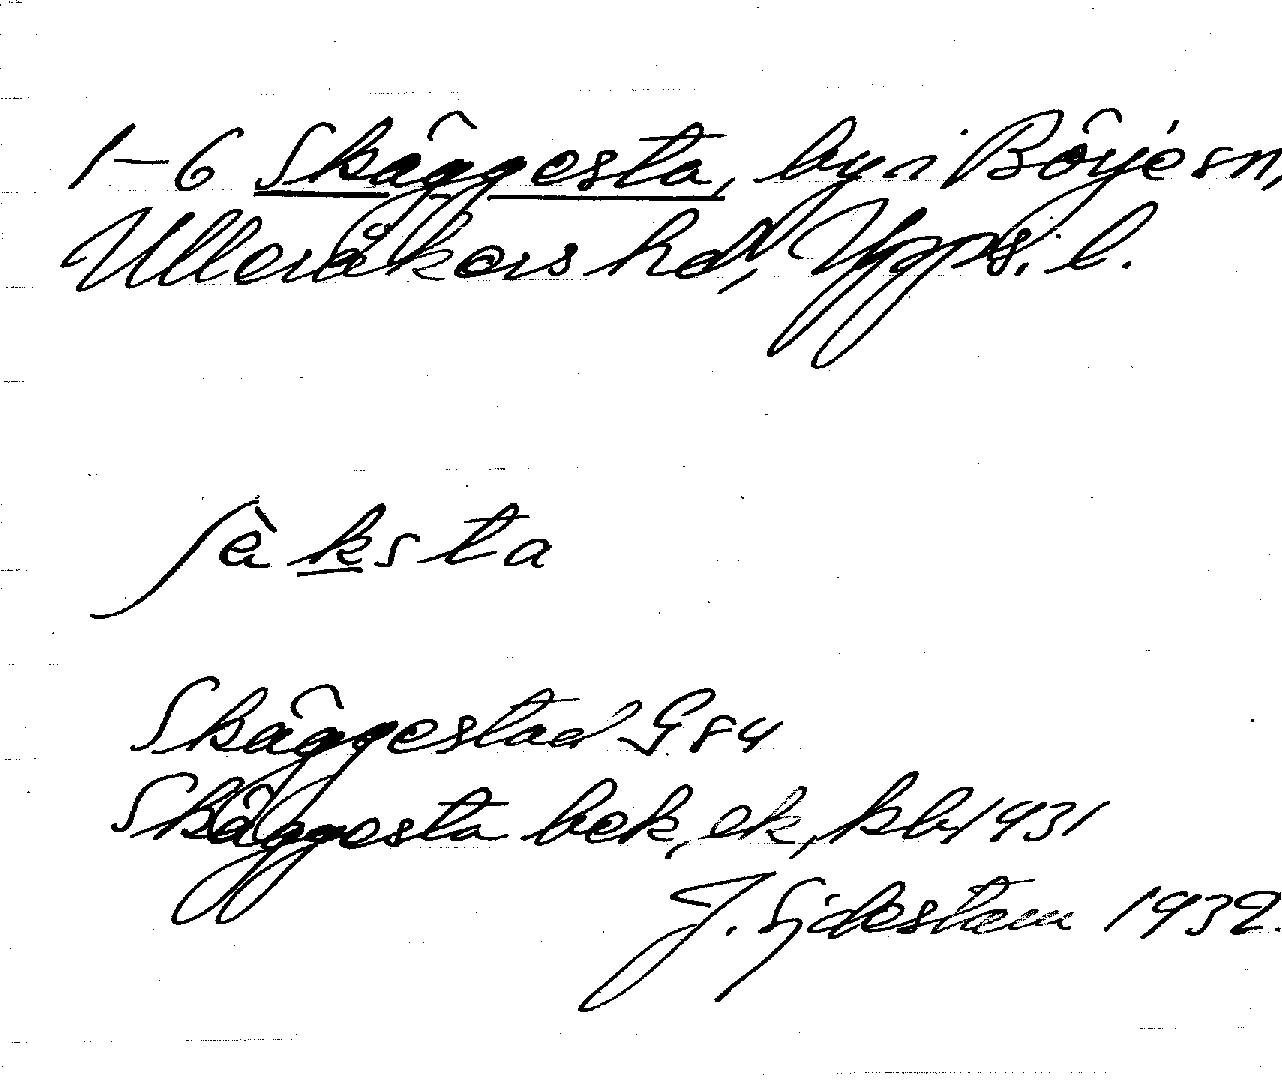 1-6 Skäggesta, by i Börje sn,
Ulleråkers hd, Upps. l.
ʃäksta
Skäggestad G84
Skäggesta bek, ek, kb, 1931
J. 1932.